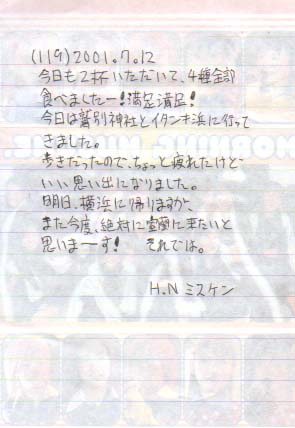 (119) 2001.7.12
今日も2杯いただいて、4種全部
食べましたー！満足満足！
今日は鷲別神社とイタンキ浜に行って
きました。
歩きだったので、ちょっと疲れたけど
いい思い出になりました。
明日、横浜に帰りますが、
また今度、絶対に室蘭に来たいと
思いまーす！ それでは。
H.N ミスケン
MORNING